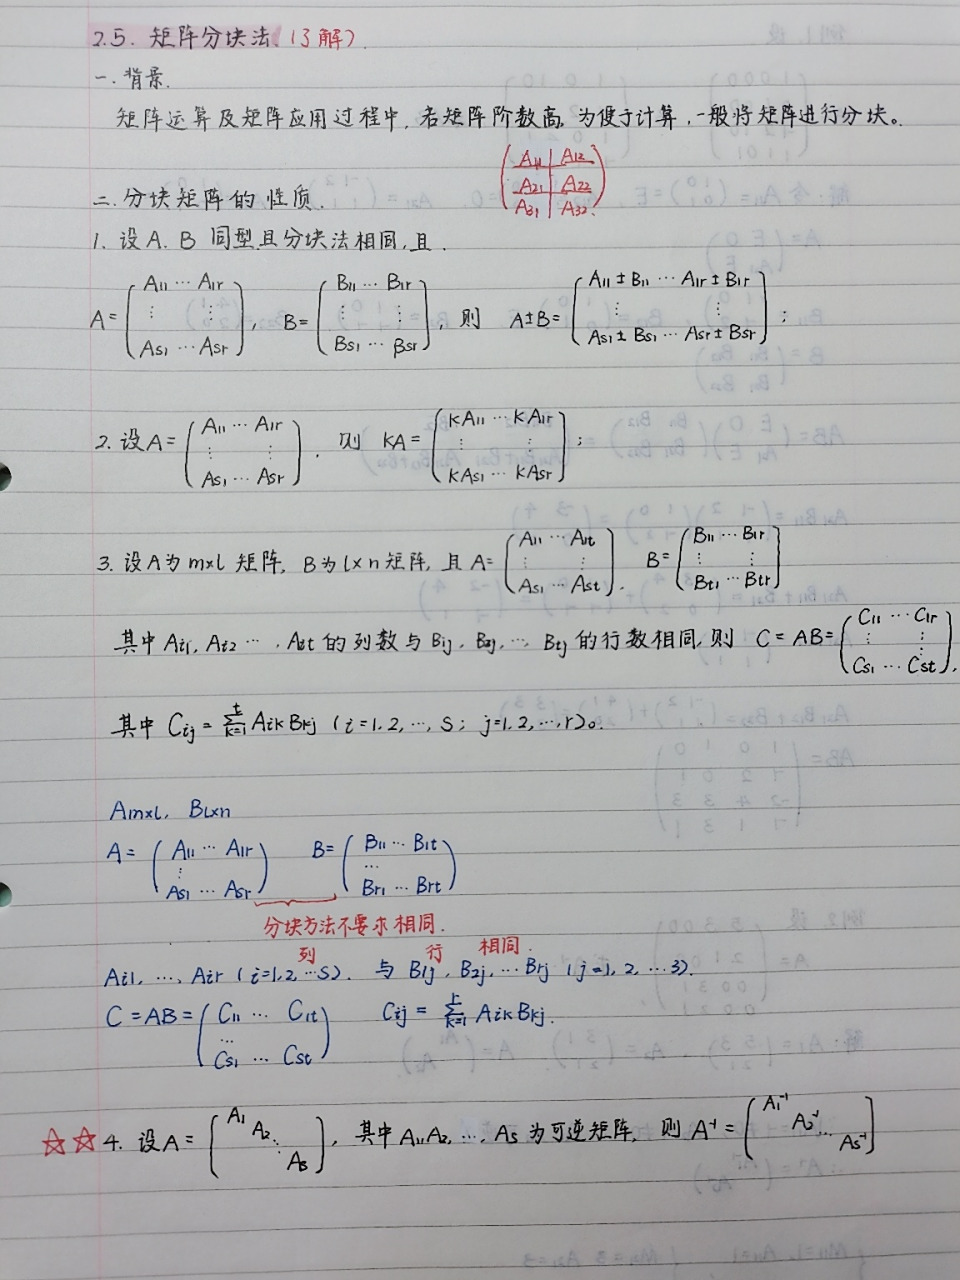 2.5. 矩阵分块法 (了解).
一. 背景.
矩阵运算及矩阵应用过程中, 若矩阵阶数高, 为便于计算, 一般将矩阵进行分块。
A11 A12
A21 A22
A31 A32.
二. 分块矩阵的性质.
1. 设A. B 同型且分块法相同, 且.
A= ( A11 ⋯ A1r ⋮ ⋮ As1 ⋯ Asr ), B= ( B11 ⋯ B1r ⋮ ⋮ Bs1 ⋯ Bsr ), 则 A±B= ( A11±B11 ⋯ A1r±B1r ⋮ ⋮ As1±Bs1 ⋯ Asr±Bsr );
2. 设A= ( A11 ⋯ A1r ⋮ ⋮ As1 ⋯ Asr ). 则 KA= ( KA11 ⋯ KA1r ⋮ ⋮ KAs1 ⋯ KAsr );
3. 设A为m×l 矩阵, B为l×n矩阵, 且 A= ( A11 ⋯ A1t ⋮ ⋮ As1 ⋯ Ast ). B= ( B11 ⋯ B1r ⋮ ⋮ Bt1 ⋯ Btr )
其中Ai1, Ai2 ⋯, Ait 的列数与B1j, B2j, ⋯, Btj 的行数相同, 则 C=AB= ( C11 ⋯ C1r ⋮ ⋮ Cs1 ⋯ Cst ).
其中 Cij = ∑(k=1→t) AikBkj (i=1.2, ⋯, S; j=1.2, ⋯, r)。
Am×l, Bl×n
A= ( A11 ⋯ A1r ⋮ As1 ⋯ Asr ) B= ( B11 ⋯ B1t ⋯ Br1 ⋯ Brt )
分块方法不要求相同.
列 行 相同.
Ai1, ⋯, Air (i=1,2, ⋯S). 与 B1j, B2j, ⋯Brj (j=1, 2, ⋯3).
C=AB= ( C11 ⋯ C1t ⋯ Cs1 ⋯ Cst ) Cij = ∑(k=1→r) AikBkj.
☆☆4. 设A= ( A1 A2 ⋱ As ), 其中A1, A2, ⋯, As 为可逆矩阵, 则 A⁻¹= ( A1⁻¹ A2⁻¹ ⋱ As⁻¹ )